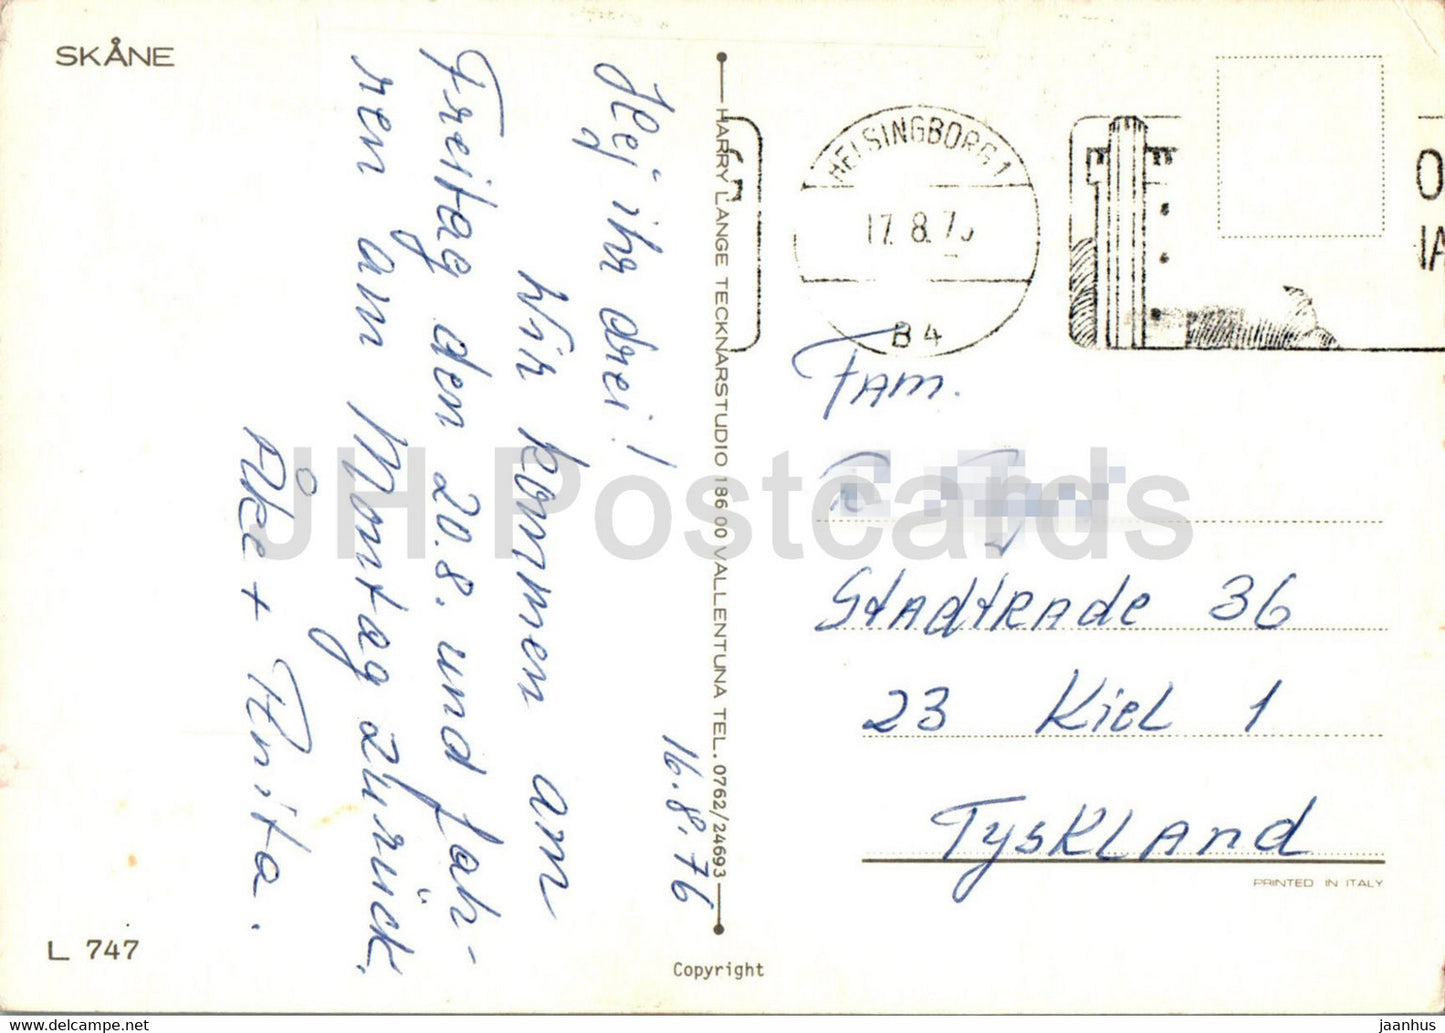 SKÅNE
16.8.76
Hej ihr drei!
Wir kommen am
Freitag den 20.8. und fah-
ren am Montag zurück.
Åke + Anita.
HARRY LANGE TECKNARSTUDIO 186 00 VALLENTUNA TEL. 0762/24693
HELSINGBORG 1
17. 8. 7
B 4
Fam.
Stadtrade 36
23 Kiel 1
Tyskland
PRINTED IN ITALY
L 747
Copyright
JH Postcards
www.delcampe.net
jaanhus